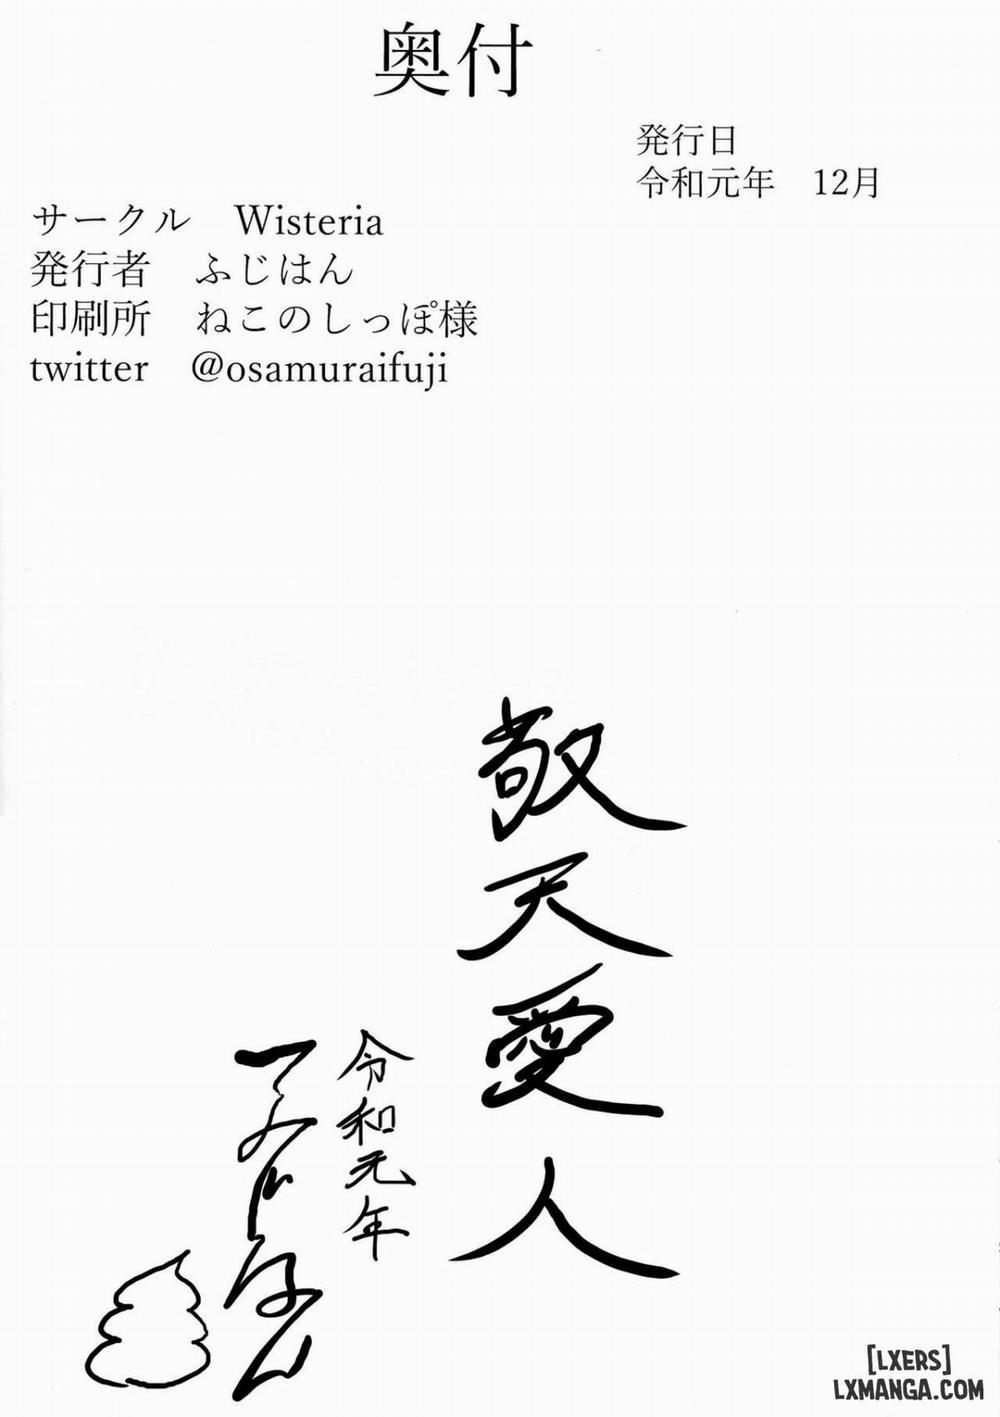 奥付
発行日
令和元年　12月
サークル　Wisteria
発行者　ふじはん
印刷所　ねこのしっぽ様
twitter　@osamuraifuji
敬天愛人
令和元年
ふじはん
[LXERS]
LXMANGA.COM